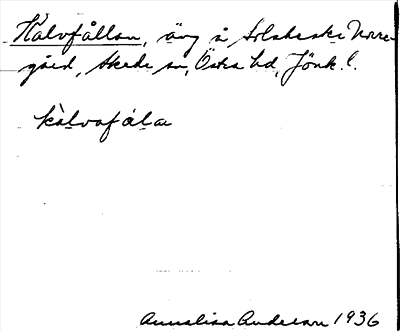 Kalvfållan, äng å Norre-
gård, Skede sn, Östra hd, Jönk. l.
kalvafåla
Annalisa Anderson 1936